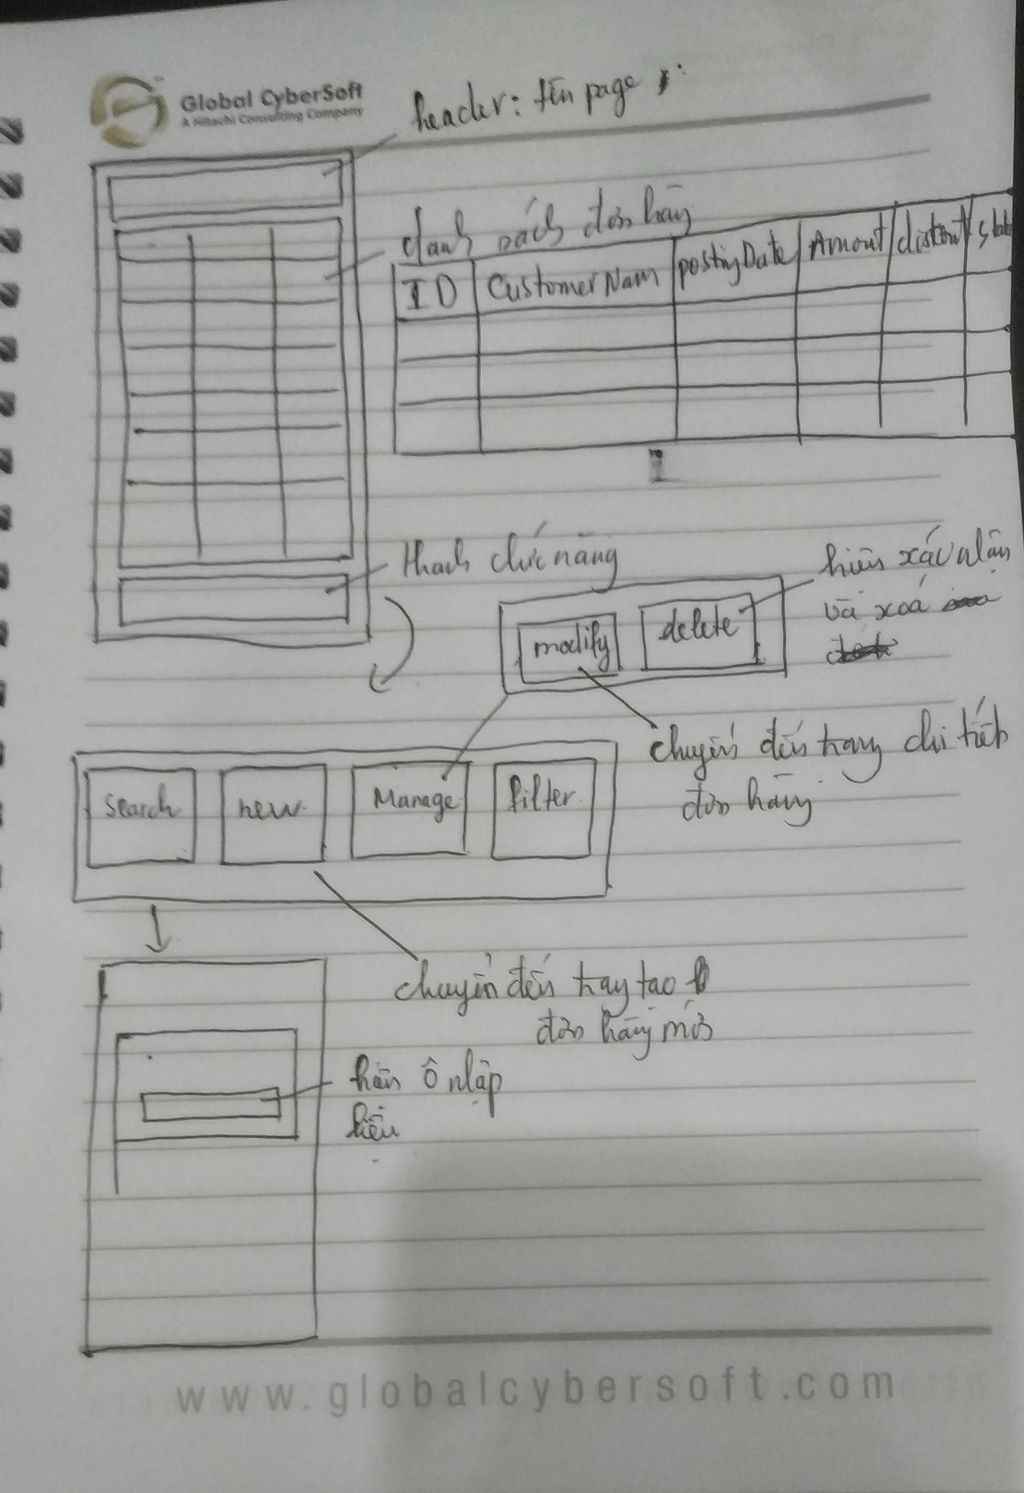 Global CyberSoft
A Hitachi Consulting Company
header: tên page
danh sách đơn hàng
ID CustomerNam postingDate Amout
thanh chức năng
modify delete
hiện xác nhận
và xoá
chuyển đến trang chi tiết
đơn hàng
Search new Manage filter
chuyển đến trang tạo
đơn hàng mới
hiện ô nhập
liệu
www.globalcybersoft.com